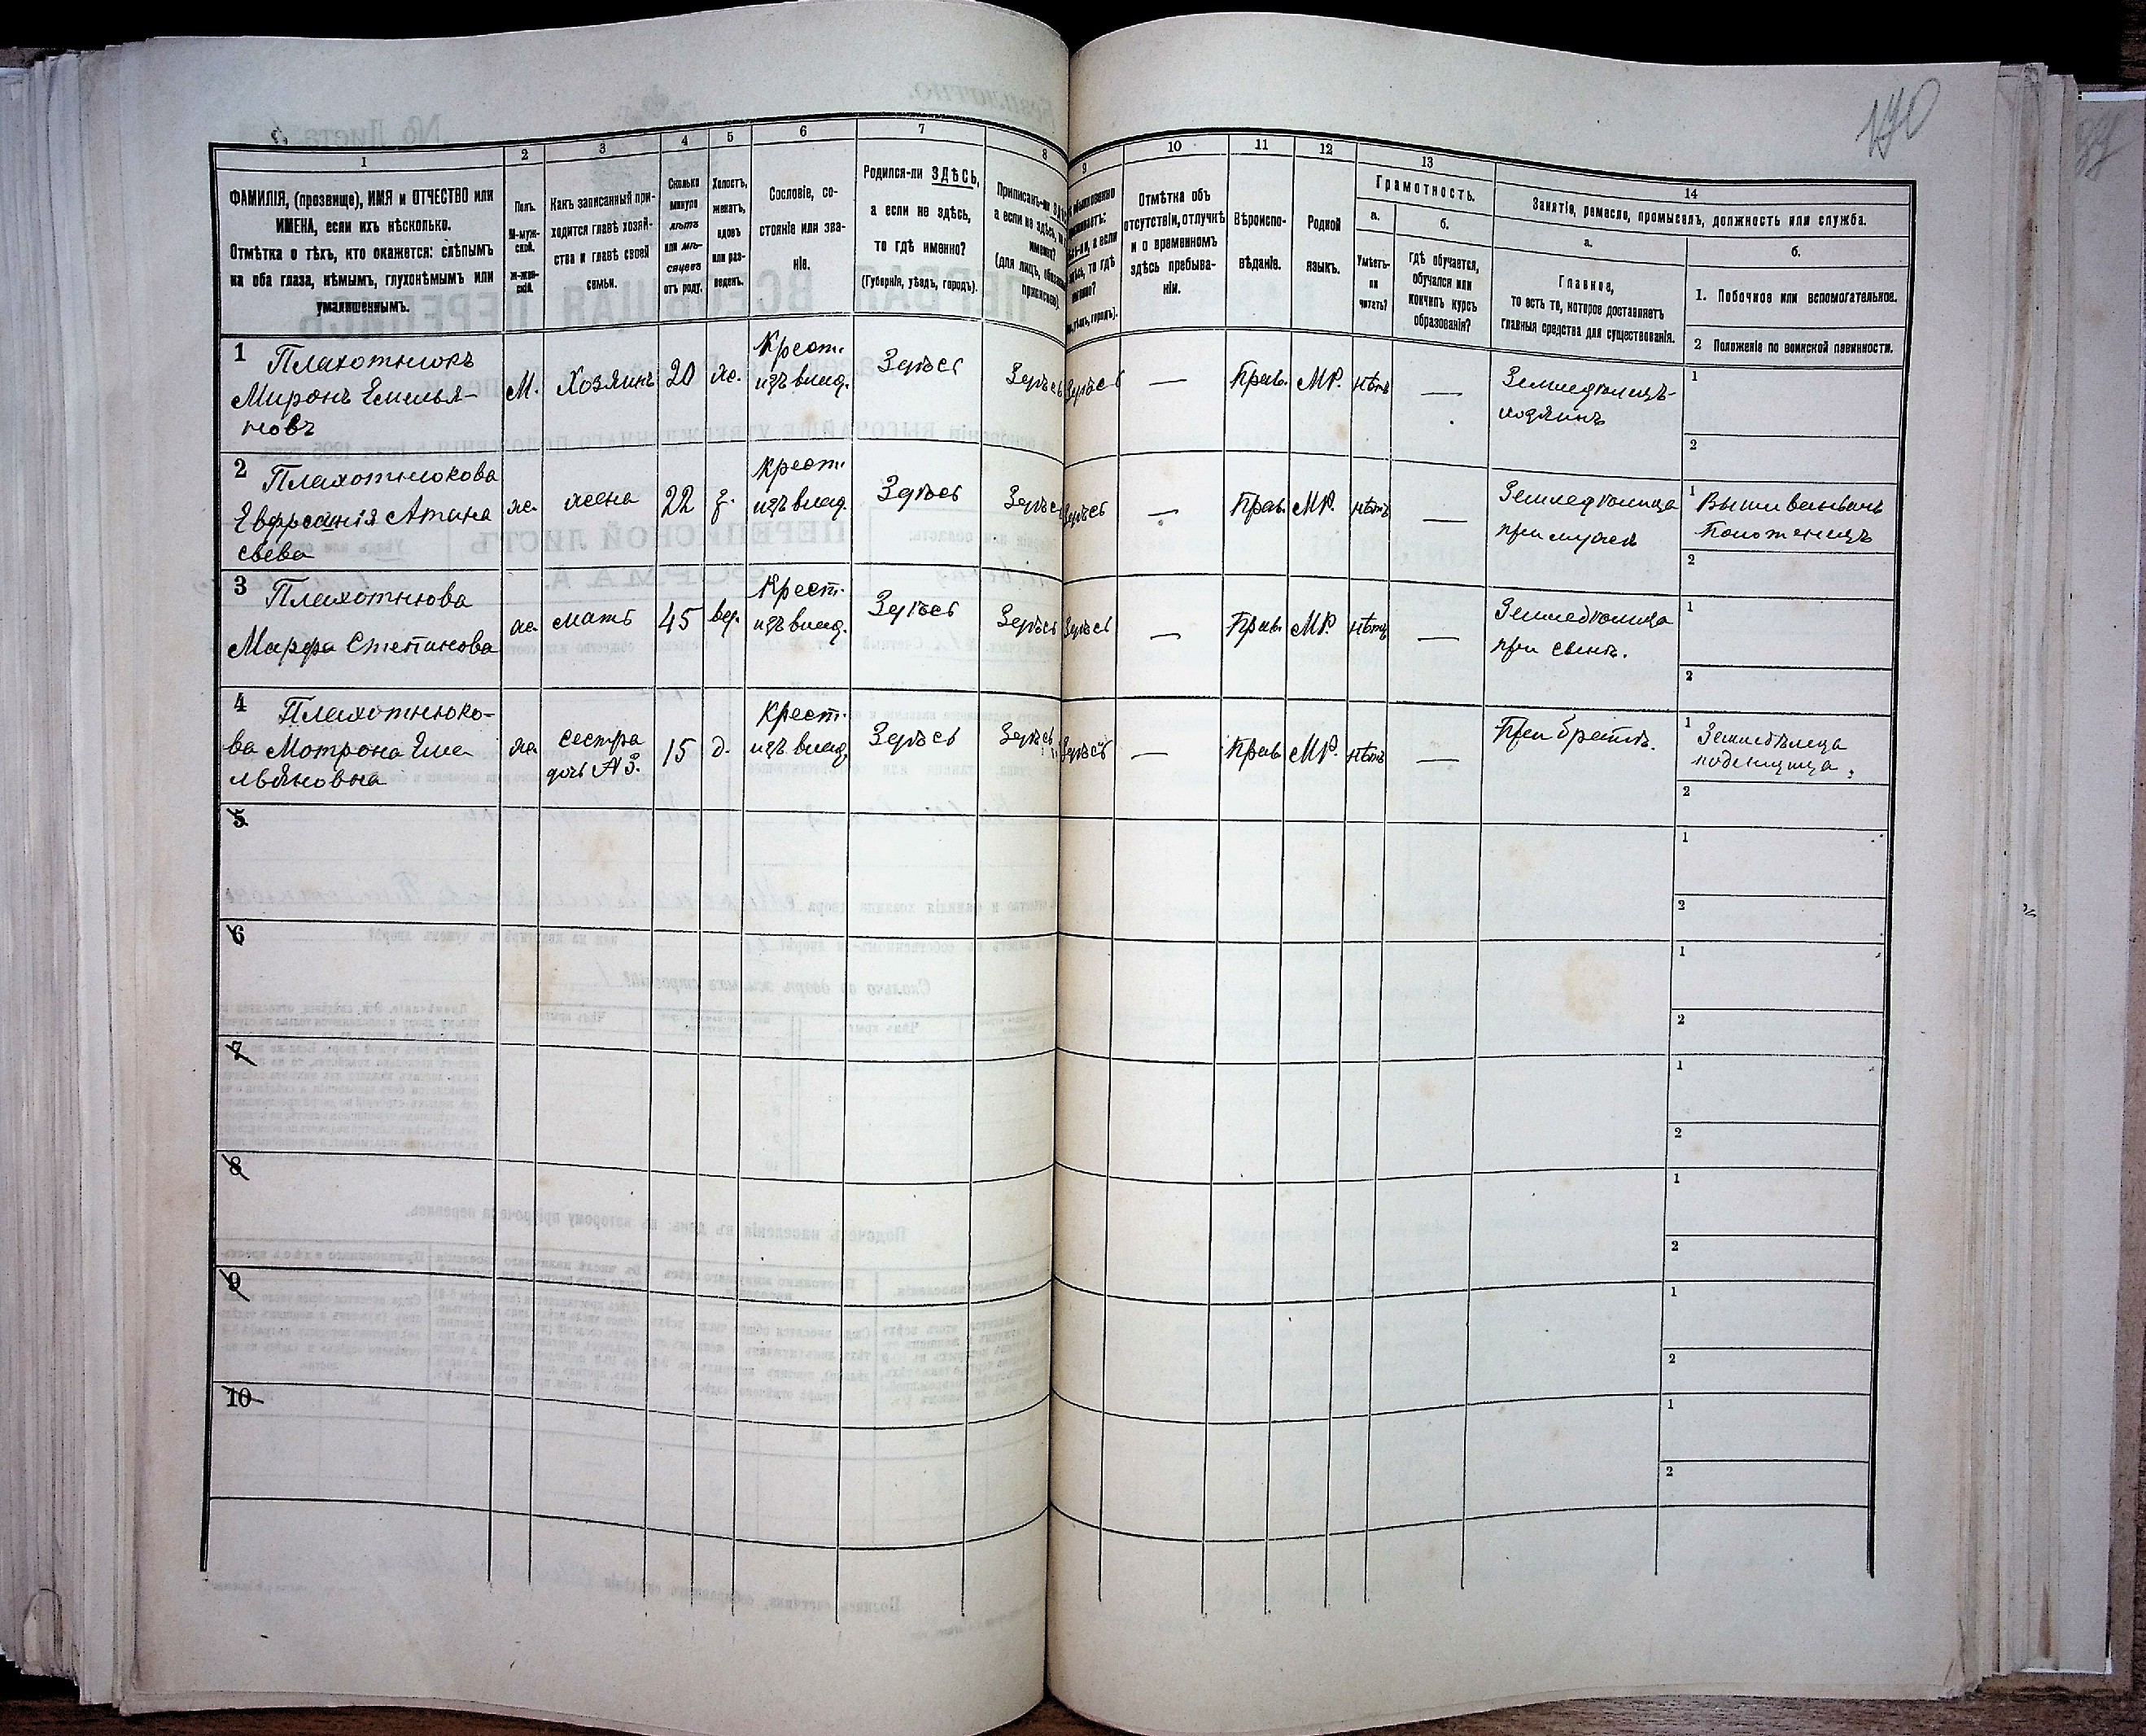 190
1
2
3
4
5
6
7
8
9
10
11
12
13
14
ФАМИЛІЯ, (прозвище), ИМЯ и ОТЧЕСТВО или
ИМЕНА, если ихъ нѣсколько.
Отмѣтка о тѣхъ, кто окажется: слѣпымъ
на оба глаза, нѣмымъ, глухонѣмымъ или
умалишеннымъ.
Полъ.
М-муж-
ской.
Ж-жен-
скій.
Какъ записанный при-
ходится главѣ хозяй-
ства и главѣ своей
семьи.
Сколько
минуло
лѣтъ
или мѣ-
сяцевъ
отъ роду.
Холостъ,
женатъ,
вдовъ
или раз-
веденъ.
Сословіе, со-
стояніе или зва-
ніе.
Родился-ли ЗДѢСЬ,
а если не здѣсь,
то гдѣ именно?
(Губернія, уѣздъ, городъ).
Приписанъ-ли
а если не здѣсь,
Отмѣтка объ
отсутствіи, отлучкѣ
и о временномъ
здѣсь пребыва-
ніи.
Вѣроиспо-
вѣданіе.
Родной
языкъ.
Грамотность.
а.
Умѣетъ-
ли
читать?
б.
гдѣ обучается,
обучался или
кончилъ курсъ
образованія?
Занятіе, ремесло, промыселъ, должность или служба.
а.
Главное,
то есть то, которое доставляетъ
главныя средства для существованія.
б.
1. Побочное или вспомогательное.
2 Положеніе по воинской повинности.
1 Плахотнюкъ
Миронъ Емилья-
новъ
М.
Хозяинъ
20
хо.
Крест.
изъ влад.
Здѣсь
Здѣсь
Здѣсь
—
Прав.
МР.
нѣтъ
—
Земледѣлецъ-
хозяинъ
1
2
2 Плахотнюкова
Евфросинія Атана
сьева
ж.
жена
22
з.
Крест.
изъ влад.
Здѣсь
Здѣсь
Здѣсь
—
Прав.
МР.
нѣтъ
—
Земледѣлица
при мужѣ
1 Вышиванье
2
3 Плахотнюва
Марфа Степанова
ж.
мать
45
вд.
Крест.
изъ влад.
Здѣсь
Здѣсь
Здѣсь
—
Прав.
МР.
нѣтъ
—
Земледѣлица
при сынѣ.
1
2
4 Плахотнюко-
ва Мотрона Еме
льяновна
ж.
сестра
дочь №3.
15
д.
Крест.
изъ влад.
Здѣсь
Здѣсь
Здѣсь
—
Прав
МР.
нѣтъ
—
При братѣ.
1 Земледѣлица
поденщица.
2
5
1
2
6
1
2
7
1
2
8
1
2
9
1
2
10
1
2